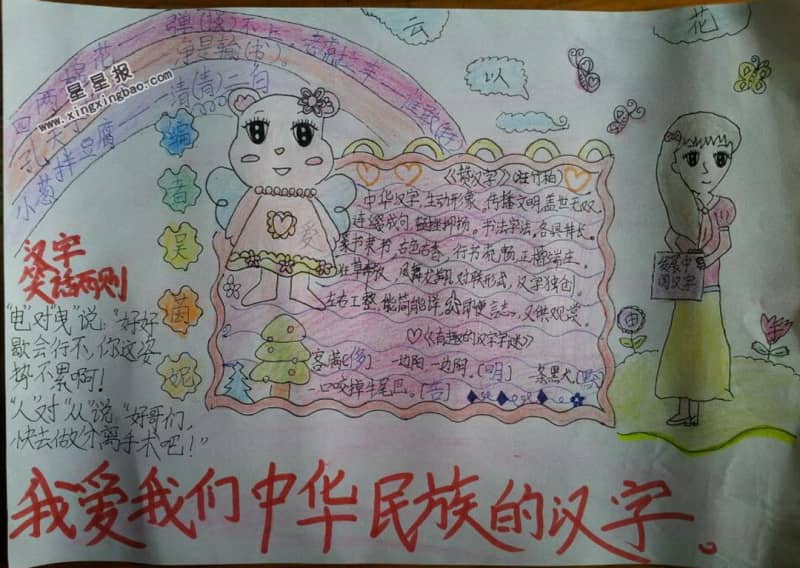 四两棉花——弹(谈)不上
老鼠拉车——
孔夫子
净是输(书)。
小葱拌豆腐——一清(青)二白
星星报
www.xingxingbao.com
云
花
以
编
者
吴
茵
妮
汉字
笑话两则
“电”对“曳”说:“好好
歇会行不,你这姿
势不累啊!
“人”对“从”说:“好哥们,
快去做分离手术吧!”
《赞汉字》
中华汉字,生动形象,传播文明,盖世无双,
连缀成句,
书法字法,各具特长,
篆书隶书,古色古香,行书流畅,正楷端庄,
狂草奔放,凤舞龙翔,对联形式,汉字独创,
左右工整,能简能详,
言志,又供观赏。
《有趣的汉字字迷》
客满(侈) 一边阴,一边阳。(明) 一条黑犬。(默)
一口咬掉牛尾巴。(告)
发展中
国汉字
由
我爱我们中华民族的汉字。